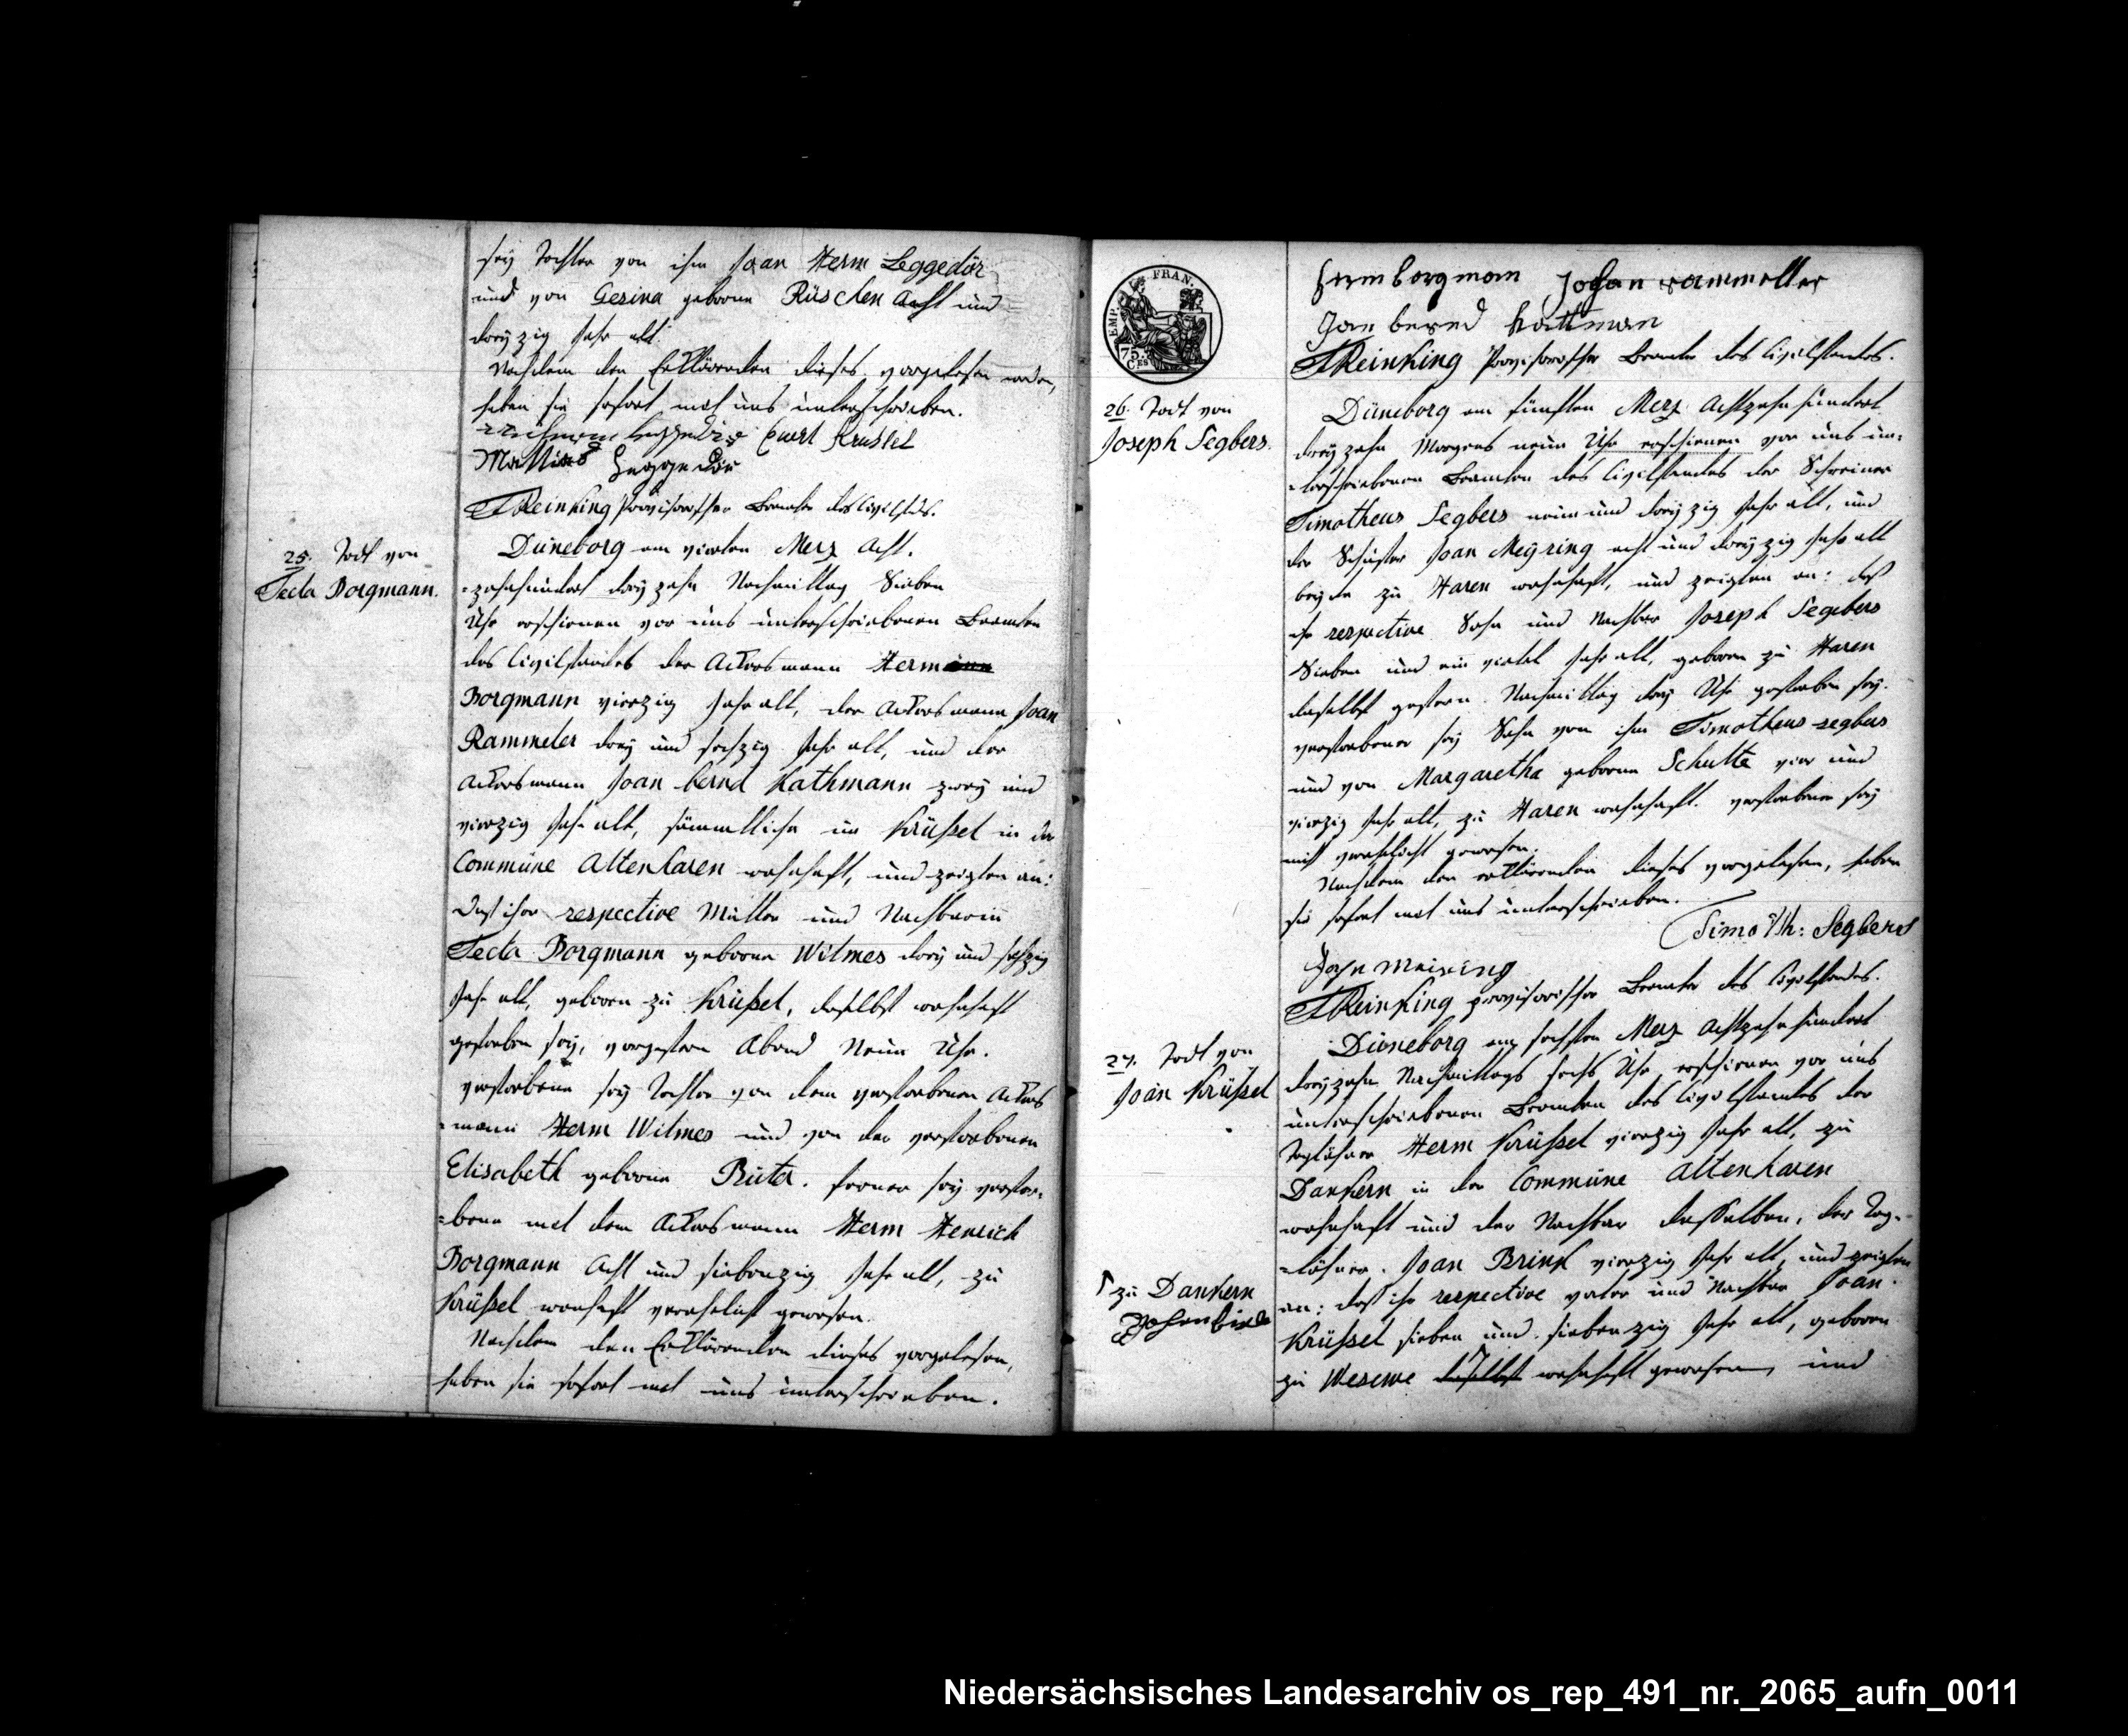 sey Tochter von ihm Joan Herm Leggedör
und von Gesina geborne Rüschen Acht und
dreyzig Jahr alt.
Nachdem den Erklärenden dieses vorgelesen worden,
haben sie sofort mit uns unterschrieben.
Evert Krussel
Mattias Leggedör
TReinking Provisorischer Beamte des Civilstds.
25. Todt von
Tecla Borgmann.
Düneborg am vierten Merz Acht-
-zehnhundert dreyzehn Nachmittag Sieben
Uhr erschienen vor uns unterschriebenen Beamten
des Civilstandes der Ackersmann Hermann
Borgmann vierzig Jahr alt, der Ackersmann Joan
Rammeler drey und sechzig Jahr alt, und der
Ackersmann Joan bernd Kathmann zwey und
vierzig Jahr alt, sämmtliche im Krüßel in der
Commüne Altenharen wohnhaft, und zeigten an:
Daß ihre respective Mutter und Nachbarin
Tecla Borgmann geborne Wilmes drey und sechzig
Jahr alt, geboren zu Krüßel, daselbst wohnhaft
gestorben sey, vorgestern Abend Neun Uhr.
verstorbene sey Tochter von dem verstorbenen Ackers
-mann Herm Wilmes und von der verstorbenen
Elisabeth geborne Büter. ferner sey verstor-
-bene mit dem Ackersmann Herm Henrich
Borgmann Acht und siebenzig Jahr alt, zu
Krüßel wonhaft verehelicht gewesen.
Nachdem den Erklärenden dieses vorgelesen,
haben sie sofort mit uns unterschrieben.
EMP. FRAN.
75. Ces
Herm borgmann Johan rammeller
Jan berend kattman
TReinking Provisorischer Beamte des Civilstandes.
26. Todt von
Joseph Segbers.
Düneborg am fünften Merz Achtzehnhundert
dreyzehn Morgens neun Uhr erschienen vor uns un-
-terschriebenen Beamten des Civilstandes der Schreiner
Timotheus Segbers neun und dreyzig Jahr alt, und
der Schuster Joan Meÿring acht und dreyzig Jahr alt
beyde zu Haren wohnhaft, und zeigten an: daß
ihr respective Sohn und Nachbar Joseph Segebers
Sieben und ein viertel Jahr alt, geboren zu Haren
daselbst gestern Nachmittag drey Uhr gestorben sey.
verstorbener sey Sohn von ihm Timotheus segbers
und von Margaretha geborne Schulte vier und
vierzig Jahr alt, zu Haren wohnhaft. verstorbener sey
nicht verehlicht gewesen.
Nachdem den erklärenden dieses vorgelesen, haben
sie sofort mit uns unterschrieben.
Timoth: Segbers
John Meiring
TReinking provisorischer Beamte des Civilstandes.
27. Todt von
Joan Krüßel
Düneborg am sechsten Merz Achtzehnhundert
dreyzehn Nachmittags sechs Uhr erschienen vor uns
unterschriebenen Beamten des Civilstandes der
Taglöhner Herm Krüßel vierzig Jahr alt, zu
Dankern in der Commüne Altenharen
wohnhaft und der Nachbar desselben, der Tag-
-löhner Joan Brink vierzig Jahr alt, und zeigten
an: daß ihr respective vater und Nachbar Joan
Krüßel sieben und siebenzig Jahr alt, geboren
zu Wesuwe daselbst wohnhaft gewesen, und
zu Dankern